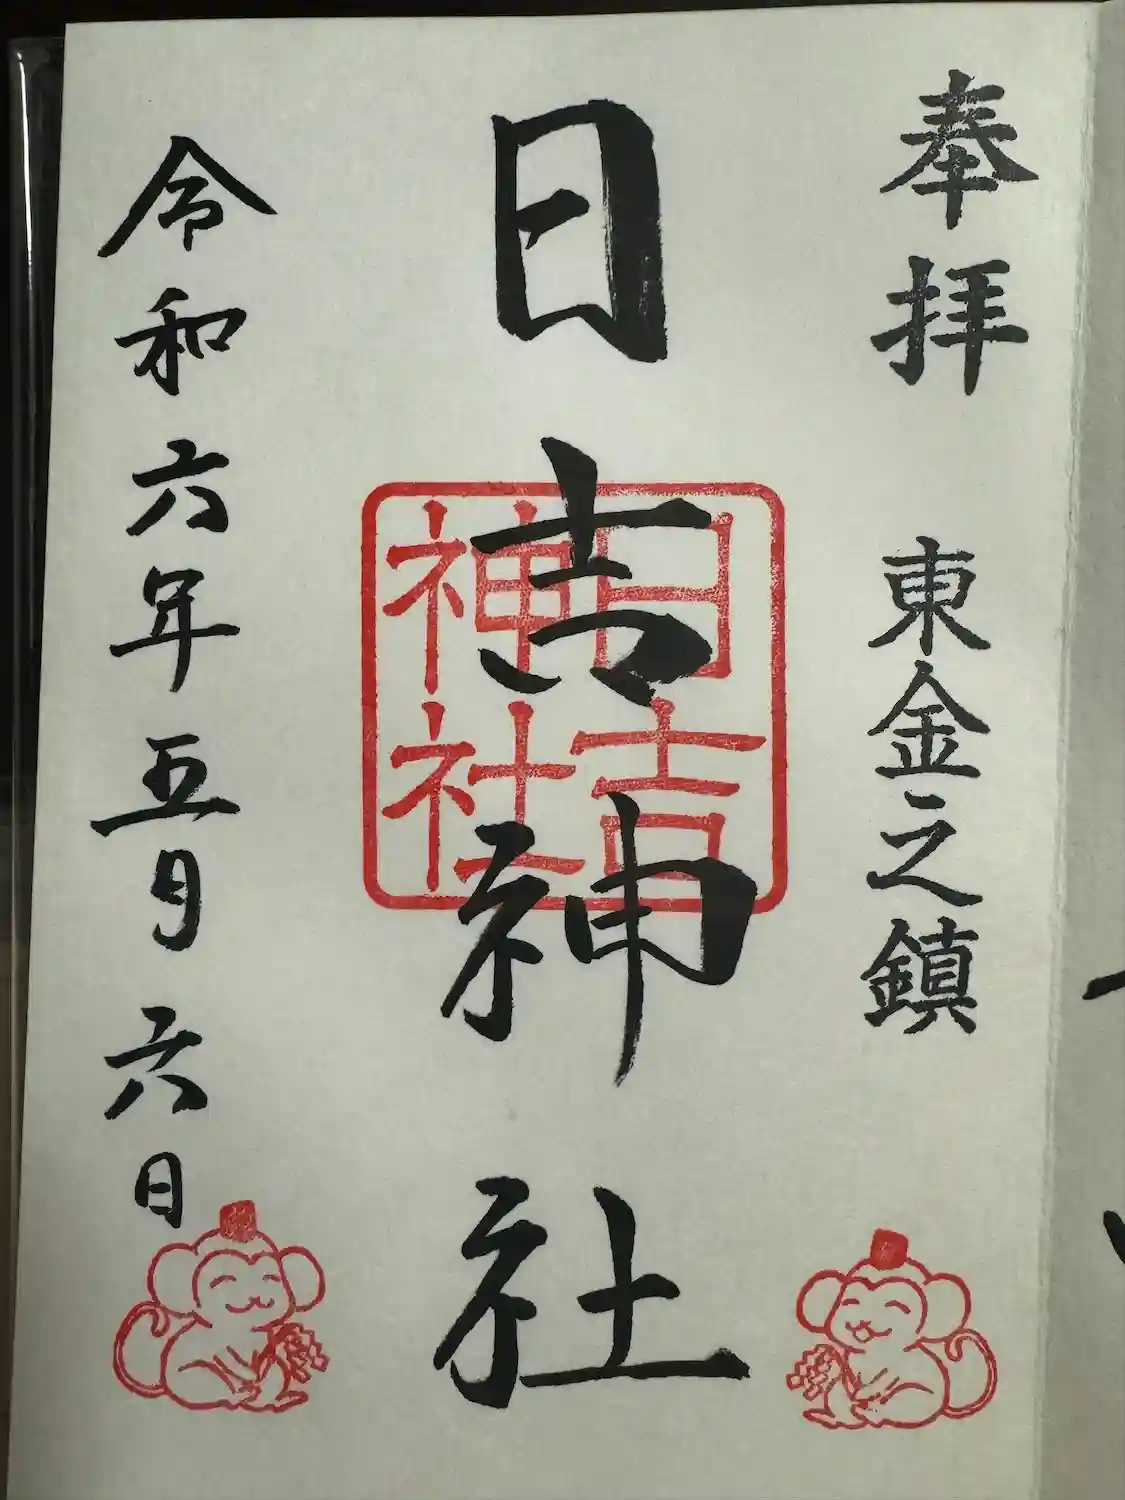 奉拝 東金之鎮
日吉神社
日吉
神社
令和六年五月六日